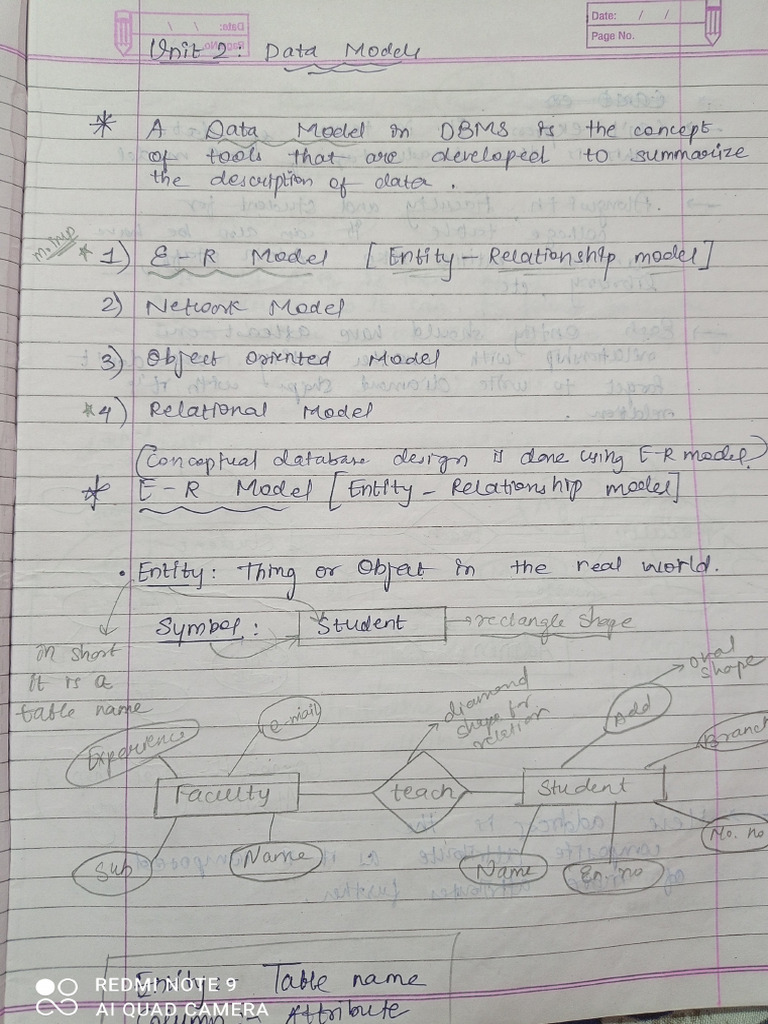 Date: / /
Page No.
Unit 2: Data Models
* A Data Model in DBMS is the concept
of tools that are developed to summarize
the description of data.
m.imp * 1) E-R Model [Entity-Relationship model]
2) Network Model
3) Object oriented Model
*4) Relational Model
(Conceptual database design is done using E-R model)
* E-R Model [Entity-Relationship model]
• Entity: Thing or Object in the real world.
Symbol: Student → rectangle shape
in short
it is a
table name
diamond
shape for
relation
oval
shape
Experience
e-mail
Add
Branch
Faculty
teach
Student
Sub
Name
Name
En.no
Mo. no
Entity: Table name
Column:- Attribute
REDMI NOTE 9
AI QUAD CAMERA